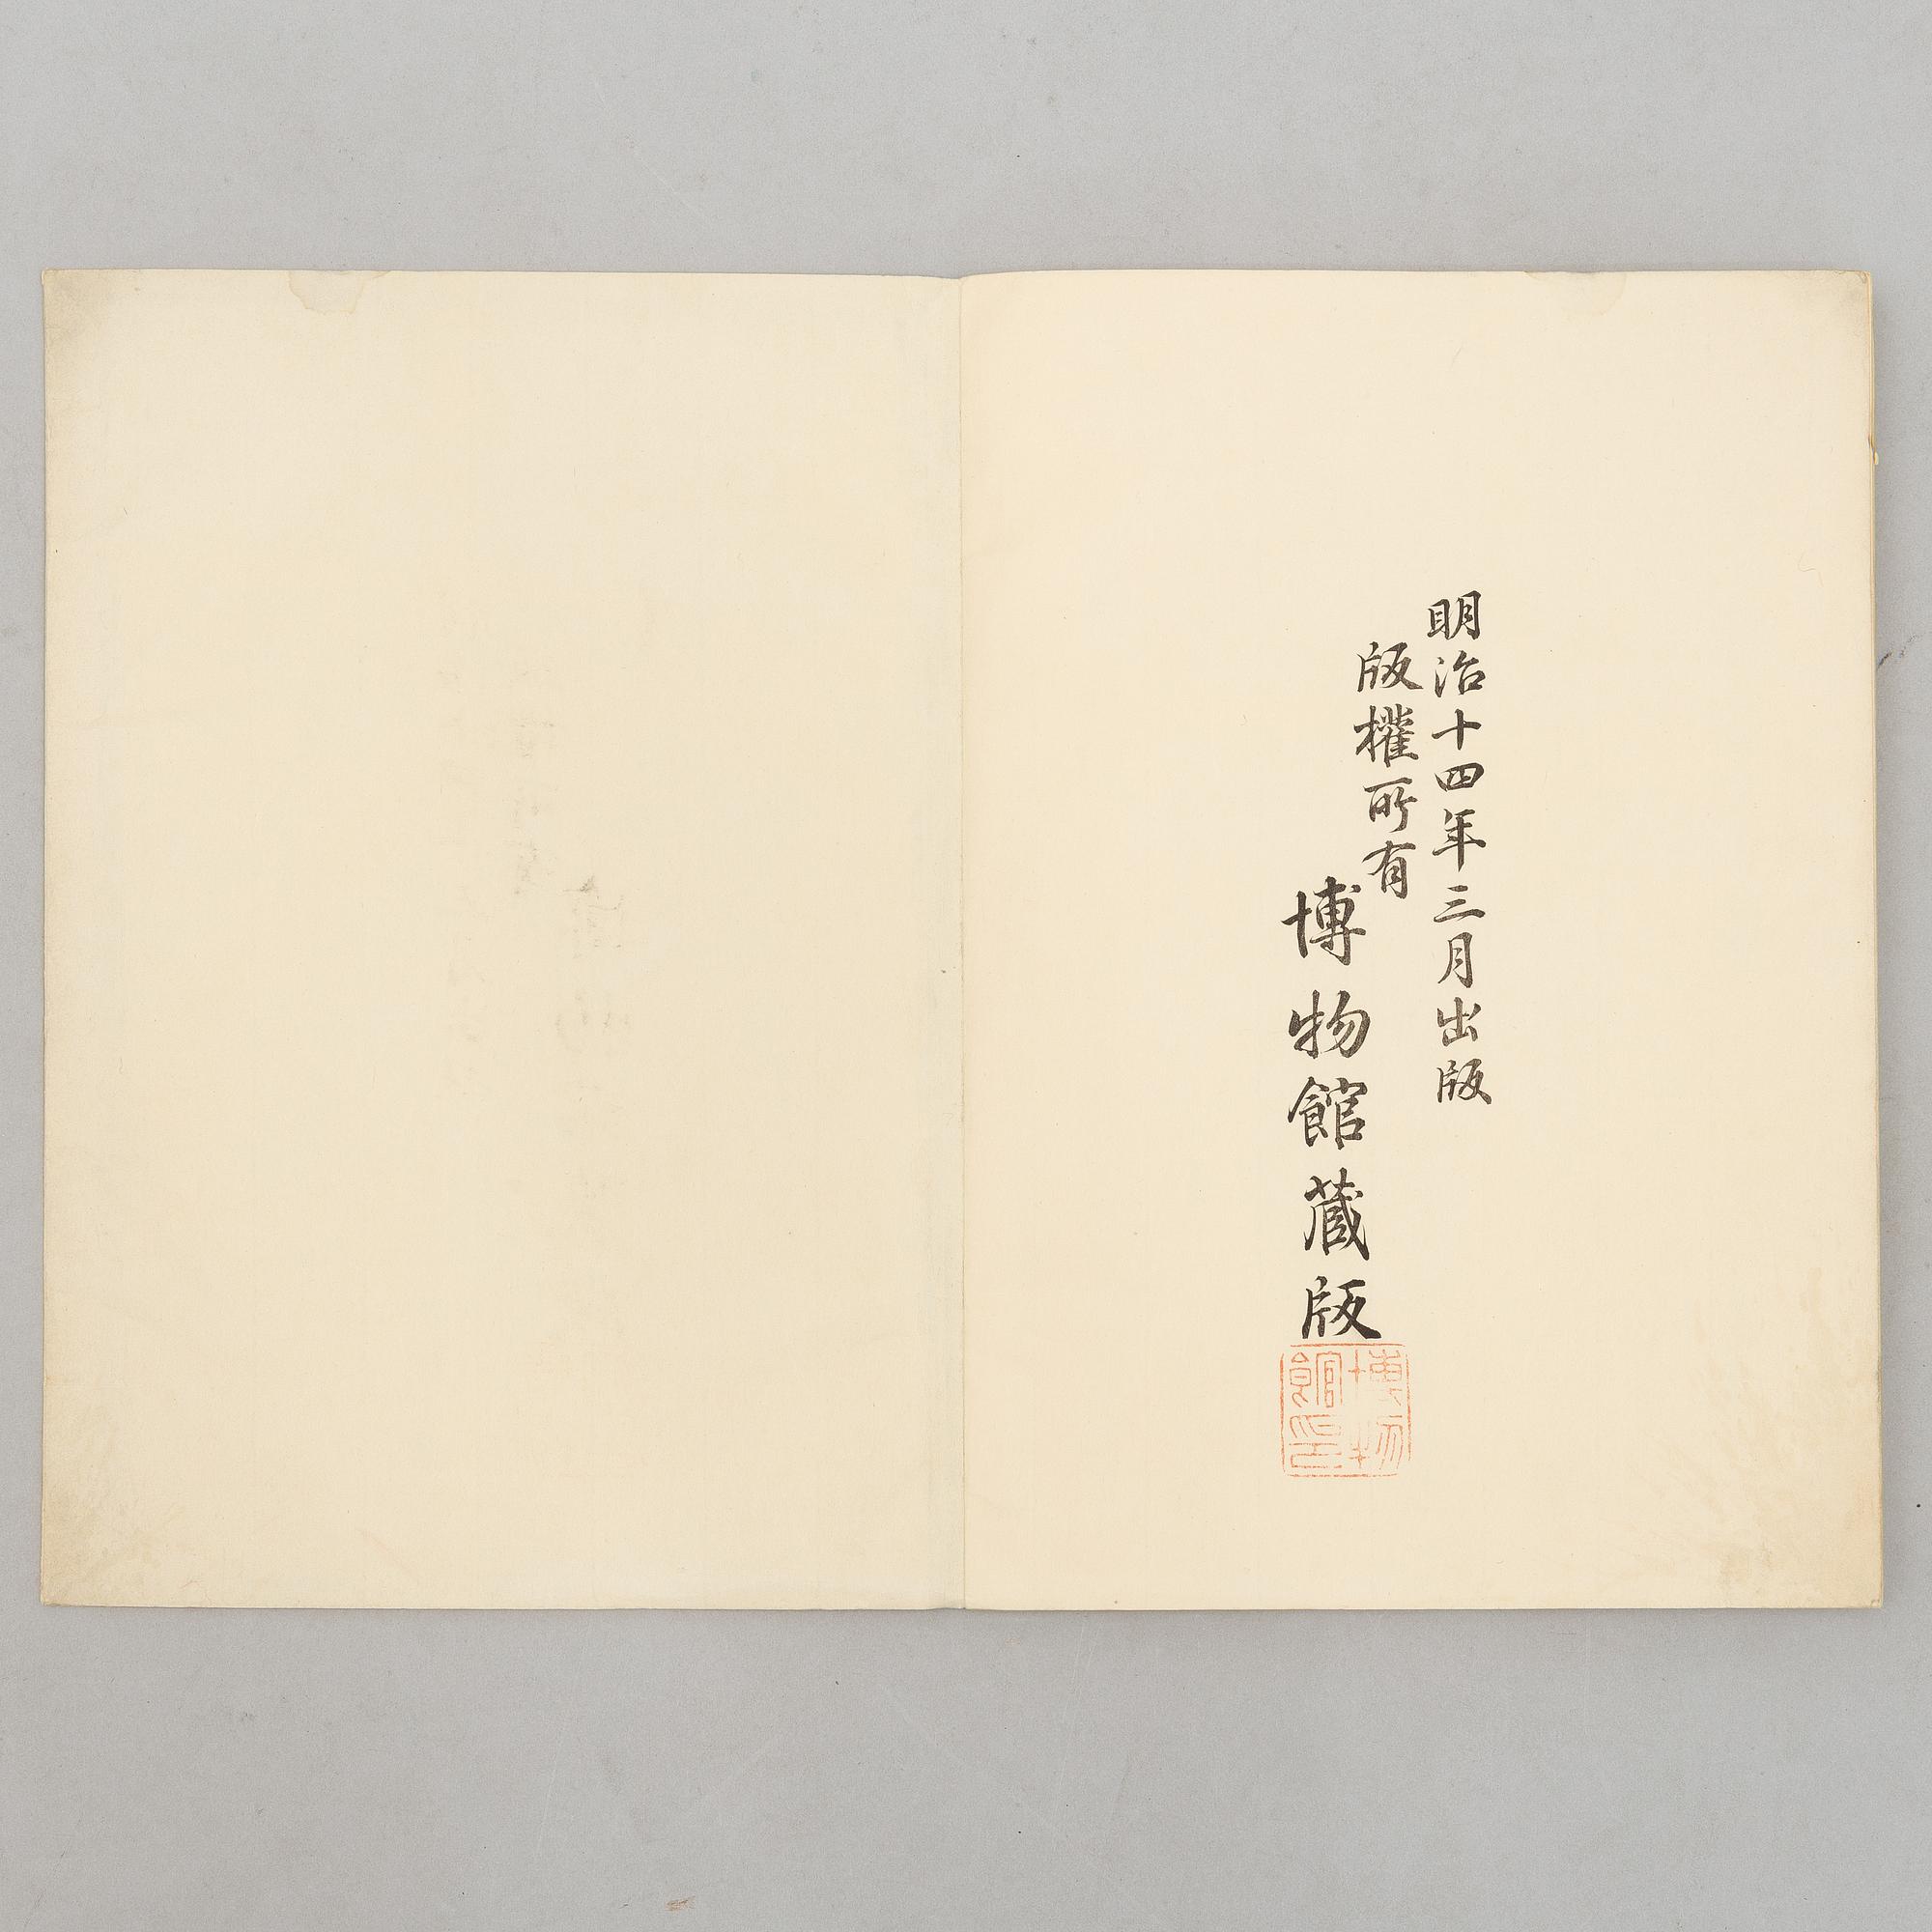 明治十四年三月出版
版權所有
博物館蔵版
博物
館印